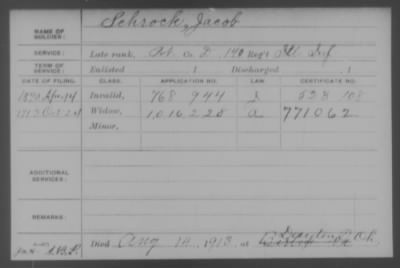 Schrock, Jacob
NAME OF SOLDIER:
SERVICE: Late rank, Pvt. Co. D, 140 Reg't Ill. Inf
TERM OF SERVICE: Enlisted 1 Discharged , 1
DATE OF FILING. CLASS. APPLICATION NO. LAW. CERTIFICATE NO.
1890 Apr. 14 Invalid, 768 944 523 108
1913 Oct. Widow, 1,016,228 a 771062
Minor,
ADDITIONAL SERVICES:
REMARKS:
Died Aug 14, 1913, at Dayton